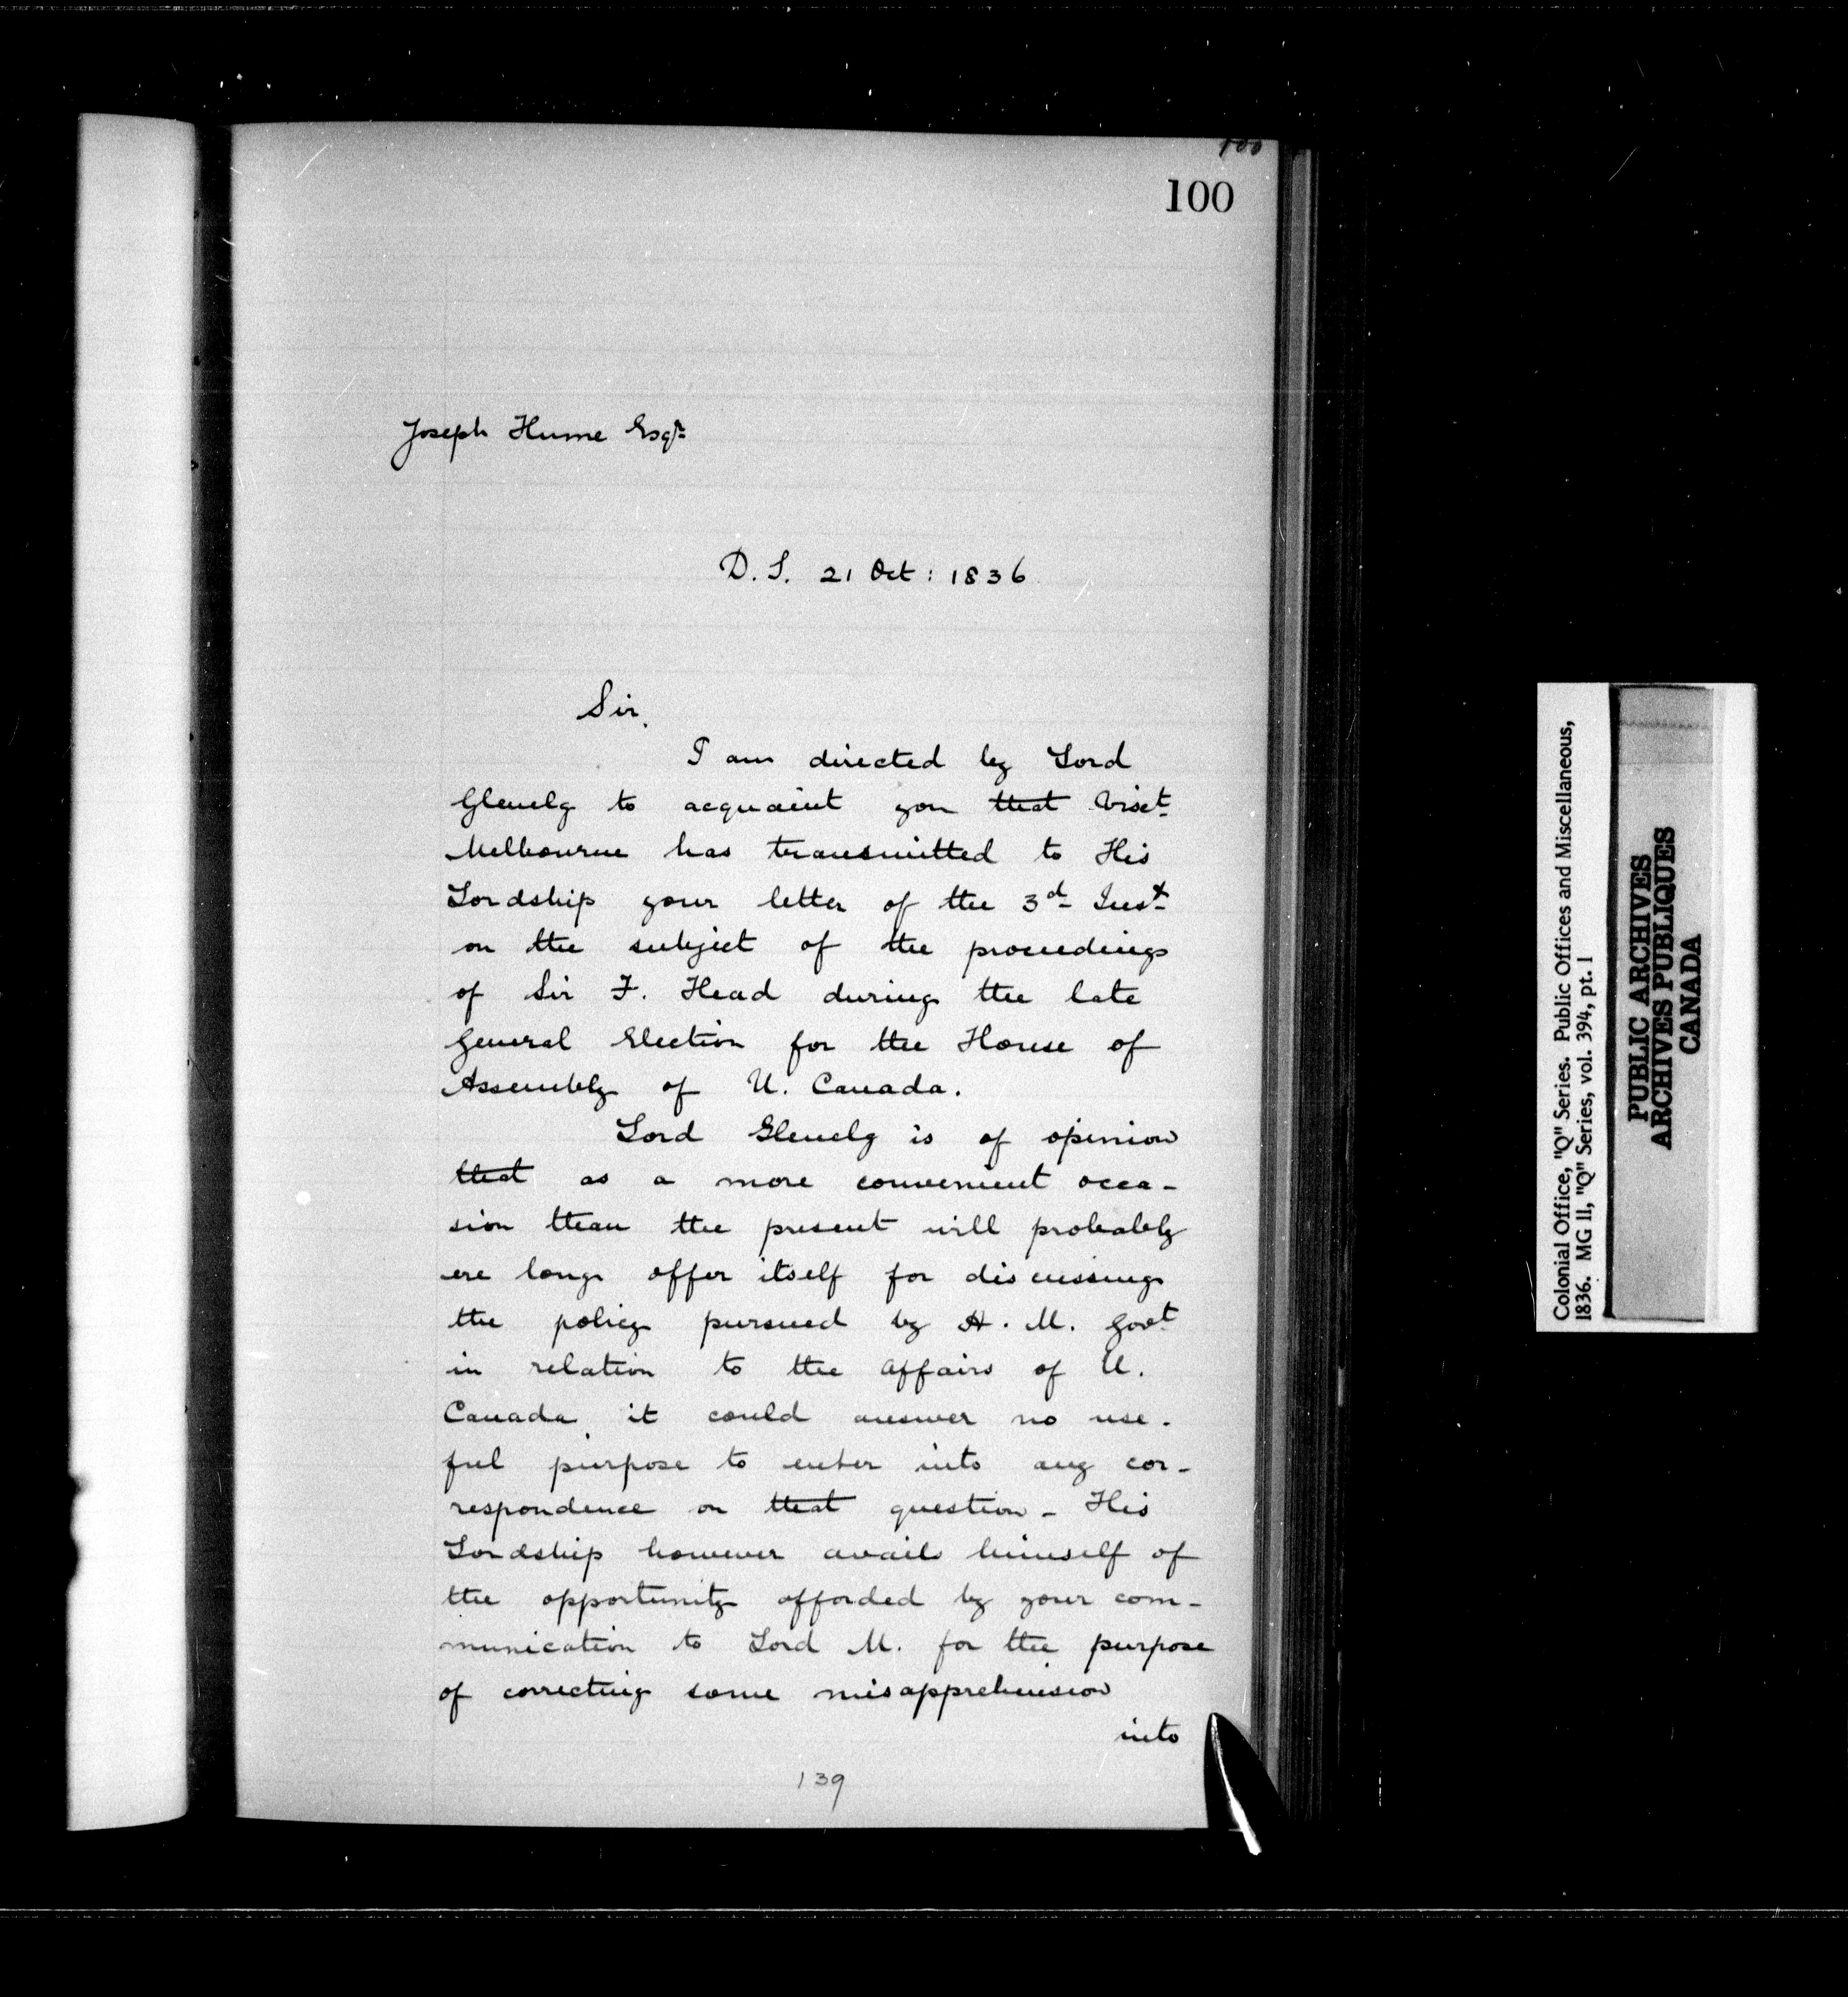 100
100
Joseph Hume Esqre
D.S. 21 Oct: 1836
Sir,
I am directed by Lord
Glenelg to acquaint you that Visct
Melbourne has transmitted to His
Lordship your letter of the 3d Inst
on the subject of the proceedings
of Sir F. Head during the late
General Election for the House of
Assembly of U. Canada.
Lord Glenelg is of opinion
that as a more convenient occa-
sion than the present will probably
ere long offer itself for discussing
the policy pursued by H. M. Govt
in relation to the affairs of U.
Canada, it could answer no use-
ful purpose to enter into any cor-
respondence on that question - His
Lordship however avails himself of
the opportunity afforded by your com-
munication to Lord M. for the purpose
of correcting some misapprehension
into
139
Colonial Office, "Q" Series. Public Offices and Miscellaneous,
1836. MG 11, "Q" Series, vol. 394, pt. 1
PUBLIC ARCHIVES
ARCHIVES PUBLIQUES
CANADA